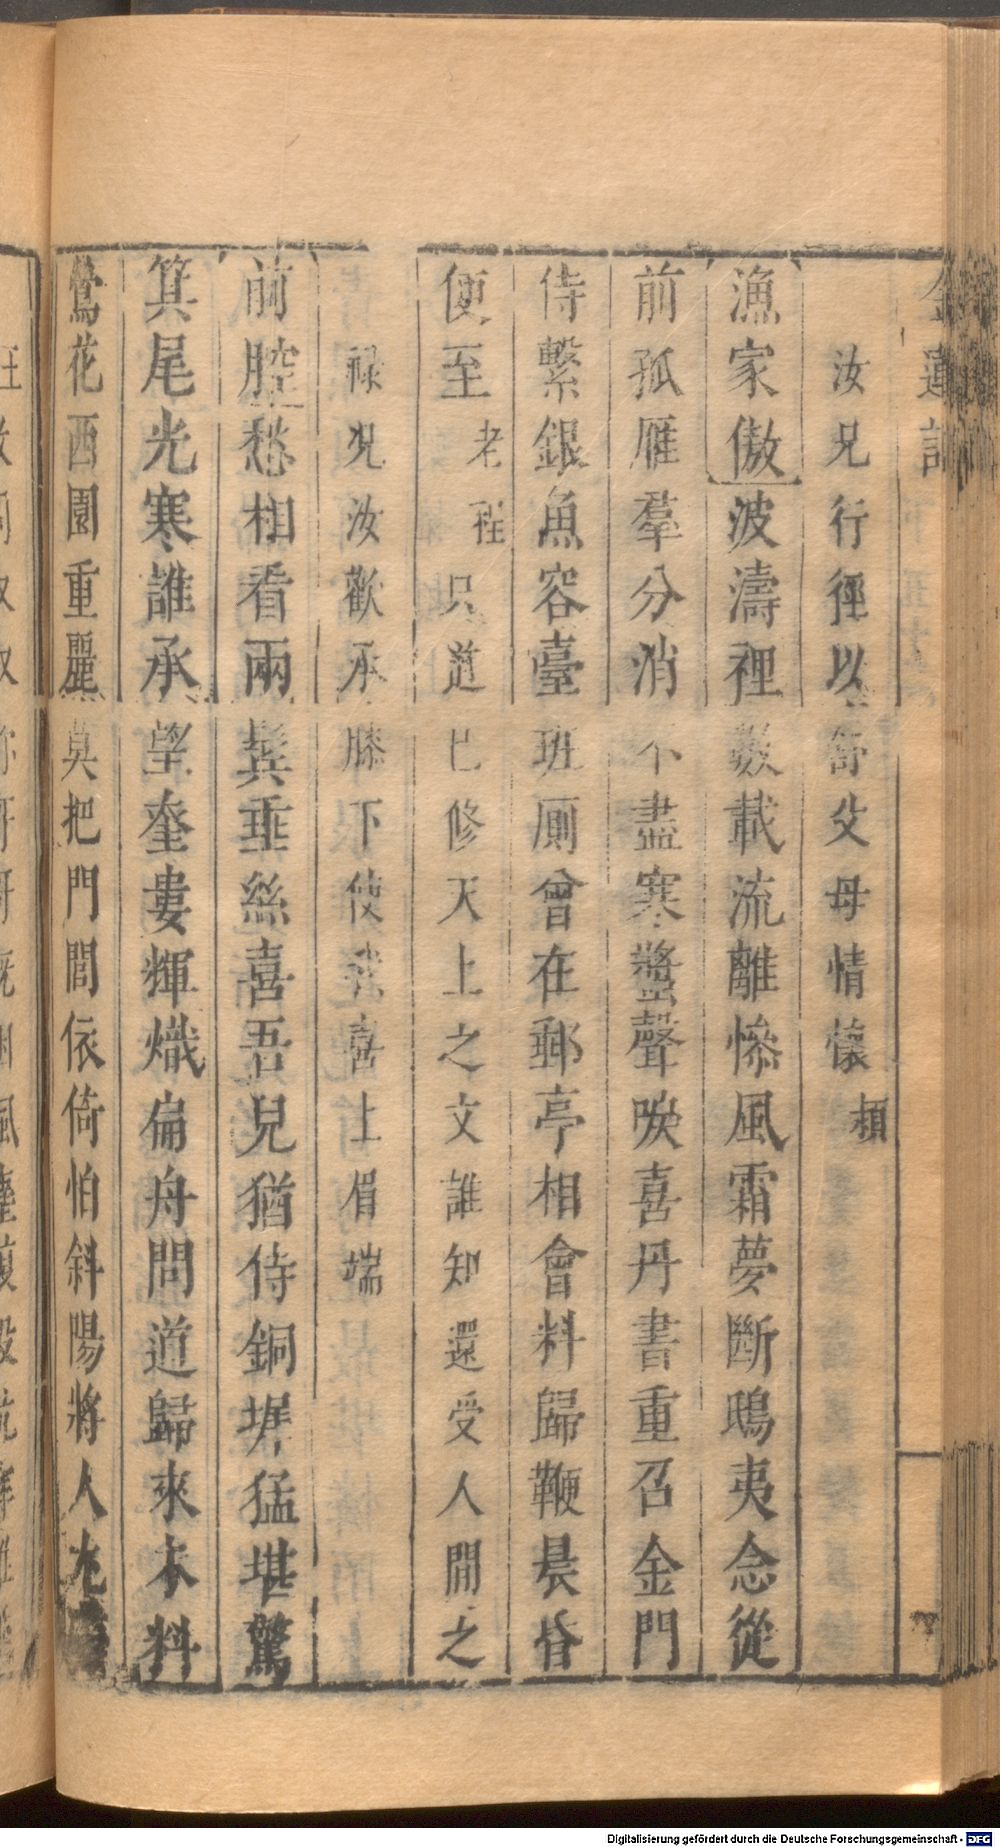 金蓮記
汝兄行徑以舒父母情懷 頫
漁家傲 波濤裡數載流離慘風霜夢斷鴟夷念從
前孤雁羣分消不盡寒螿聲唳喜丹書重召金門
侍繫銀魚容臺班廁曾在郵亭相會料歸鞭晨昏
便至 老 程 只道已修天上之文誰知還受人間之
祿况汝歡承膝下使我喜上眉端
前腔 愁相看兩鬂垂絲喜吾兒猶侍銅墀猛堪驚
箕尾光寒誰承望奎婁輝熾扁舟問道歸來未料
鶯花西園重麗莫把門閭依倚怕斜陽將人
Digitalisierung gefördert durch die Deutsche Forschungsgemeinschaft - DFG